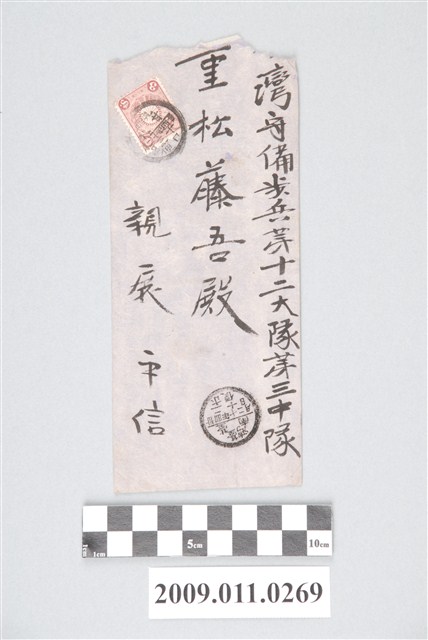 灣守備歩兵第十二大隊第三中隊
重松藤吾殿
親展 平信
1cm
5cm
10cm
2009.011.0269